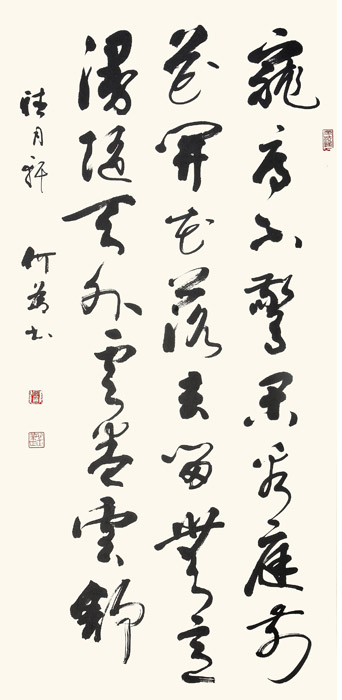 寵辱不驚閑看庭前
花開花落去留無意
漫隨天外雲卷雲舒
月軒 書